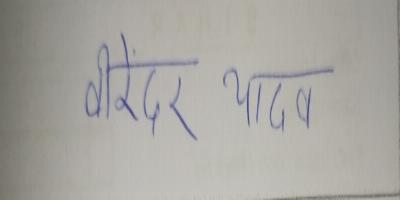 वीरेंदर यादव